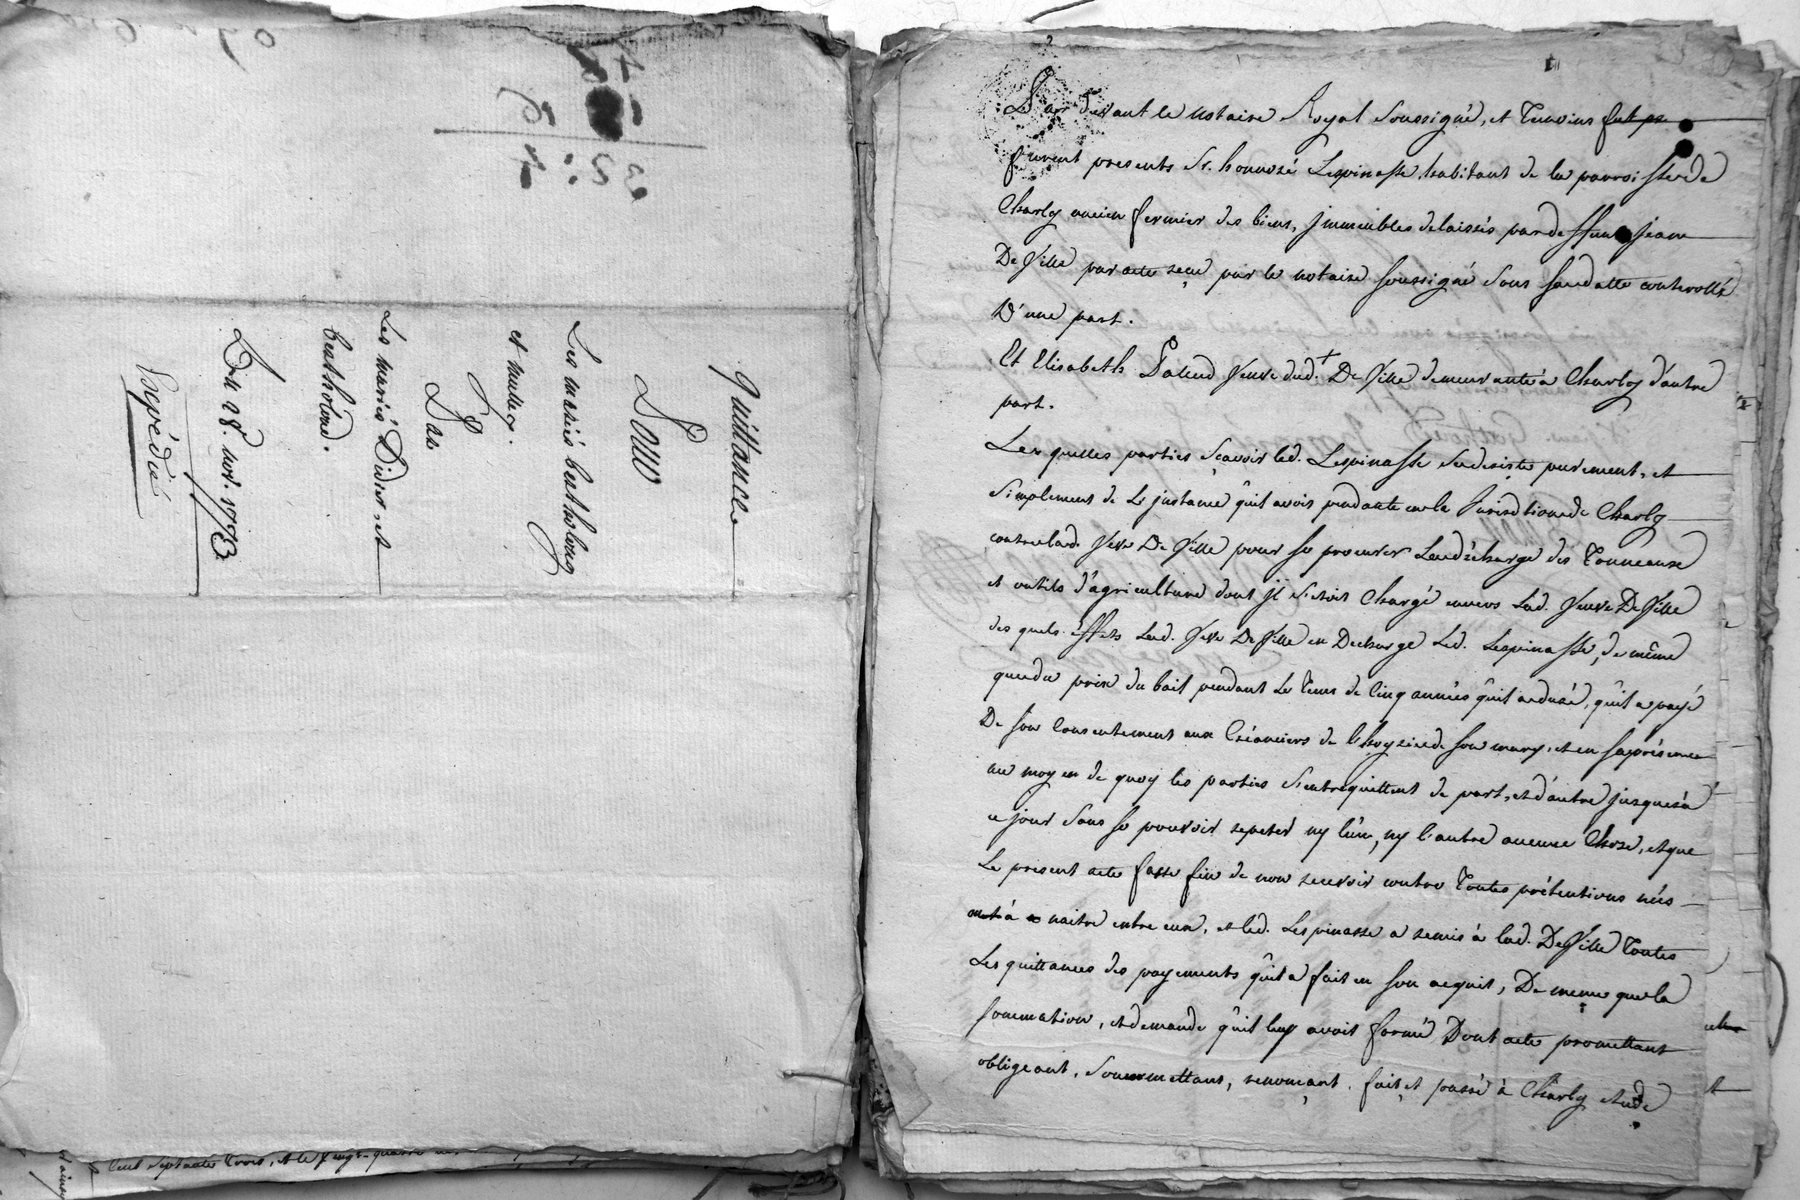 Quittance
Pour
Les mariés bertholon
et mullet.
Par
Les mariés Didier et
berthólon.
Du 28. nov. 1773
Expédié
Par devant le notaire Royal soussigné, et temoins fut pr
furent presents Sr. honnoré Lespinasse, habitant de la parroisse de
Charly ancien fermier des biens, jmmeubles delaissés par deffunt jean
De Ville par acte reçu par le notaire soussigné sous sa datte controllé
D'une part.
Et Elisabeth Patend Veuve dud.t De Ville demeurante à Charly d'autre
part.
Les quelles parties sçavoir led. Lespinasse se desiste purement, et
simplement de L'jnstance qu'il avoit pendante en la Jurisdiction de Charly
contre lad. Veve De Ville pour se procurer La décharge des Tonneaux
et outils d'agriculture dont jl s'etoit chargé envers Lad. Veuve De Ville
des quels éffets Lad. Veve De Ville en Decharge Led. Lespinasse, de même
que du prix du bail pendant Le tems de cinq années qu'il a duré, qu'il a payé
De son consentement aux Créanciers de l'hoyrie de son mary, et en sa présence
au moyen de quoy les parties s'entrequittent de part, et d'autre jusques à
ce jour sans se pouvoir repeter ny l'un, ny l'autre aucune Chose, et que
Le present acte fasse fin de non recevoir contre Toutes prétentions nées
et à naitre entre eux, et led. Lespinasse a remis à lad. De Ville Toutes
Les quittances des payements qu'il a fait en son acquit, De meme que la
sommation, et demande qu'il luy avoit formé Dont acte promettant
obligeant, soumettant, renonçant. fait et passé à Charly etude
cent septante trois, et le vingt-quatre